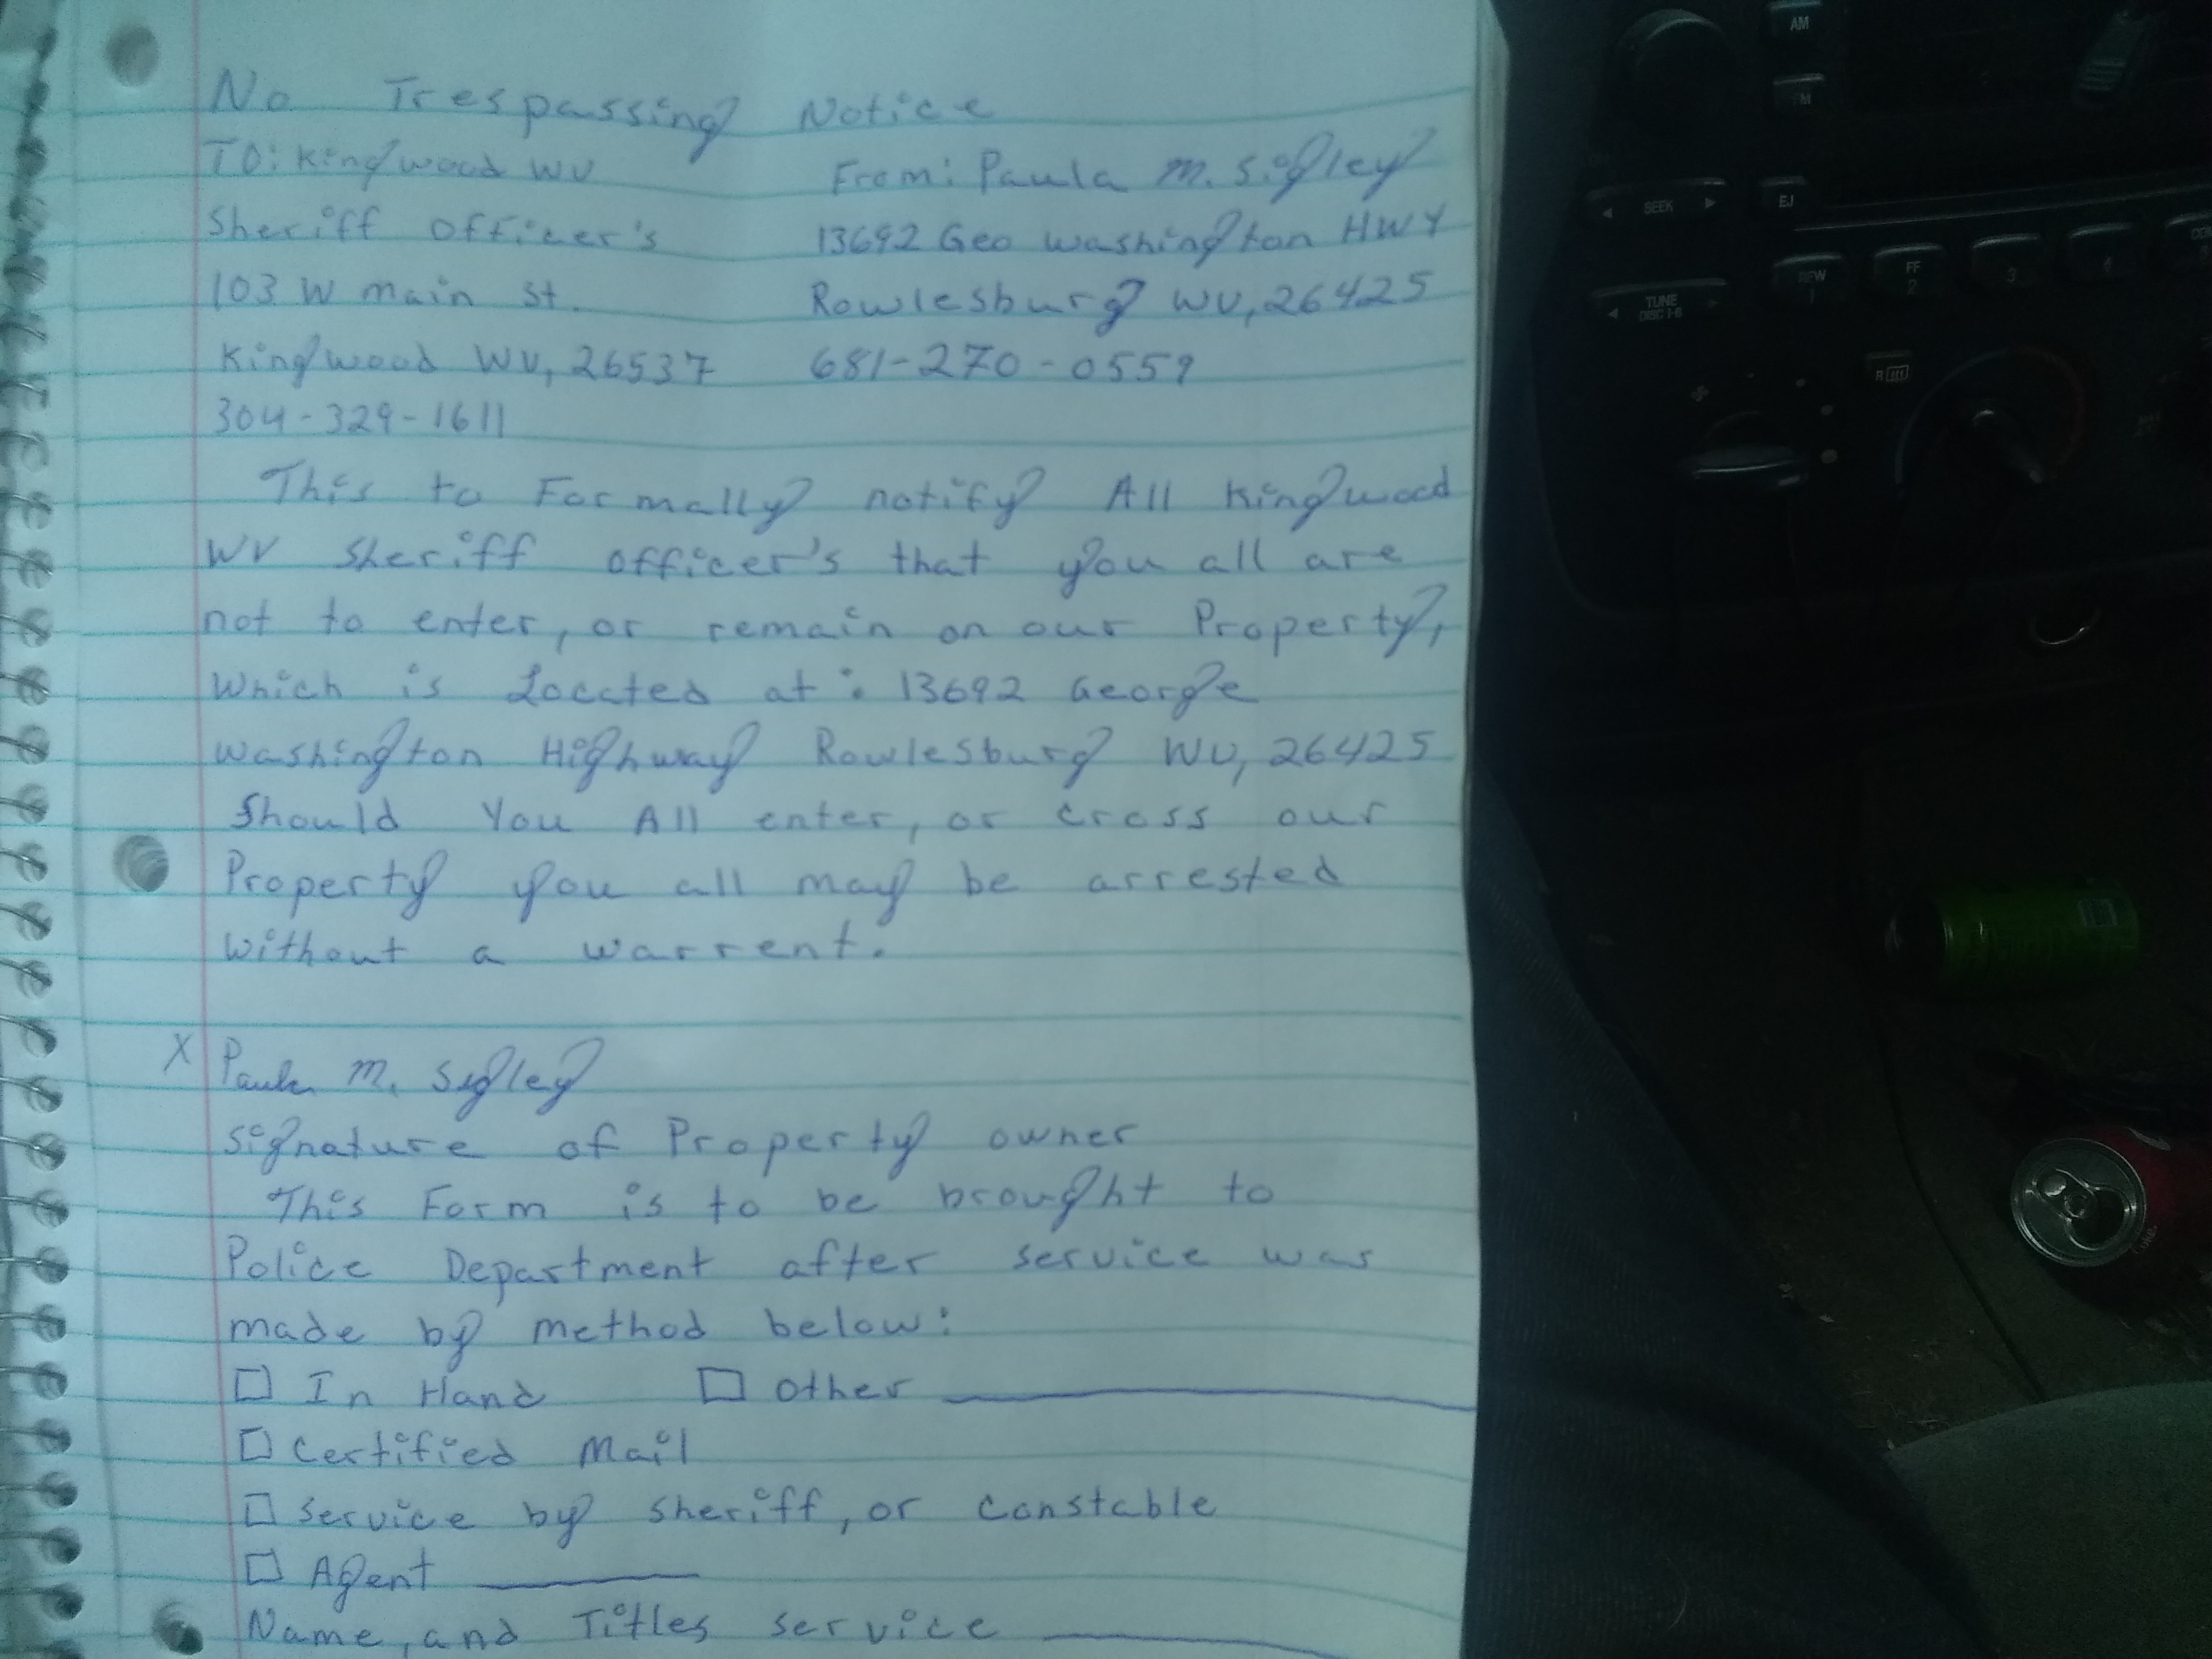 No Trespassing Notice
TO: Kingwood WV
Sheriff Officer's
103 W main st.
Kingwood WV, 26537
304-329-1611
From: Paula M. Sigley
13692 Geo Washington HWY
Rowlesburg WV, 26425
681-270-0559
This to Formally notify All Kingwood
WV Sheriff officer's that you all are
not to enter, or remain on our Property,
Which is Located at: 13692 George
Washington Highway Rowlesburg WV, 26425
Should You All enter, or cross our
Property you all may be arrested
without a warrent.
X Paula M. Sigley
Signature of Property owner
This Form is to be brought to
Police Department after service was
made by method below:
☐ In Hand ☐ Other
☐ Certified Mail
☐ Service by Sheriff, or Constable
☐ Agent
Name, and Titles service
AM
FM
SEEK
EJ
TUNE
DISC 1-6
REW
1
FF
2
3
4
R